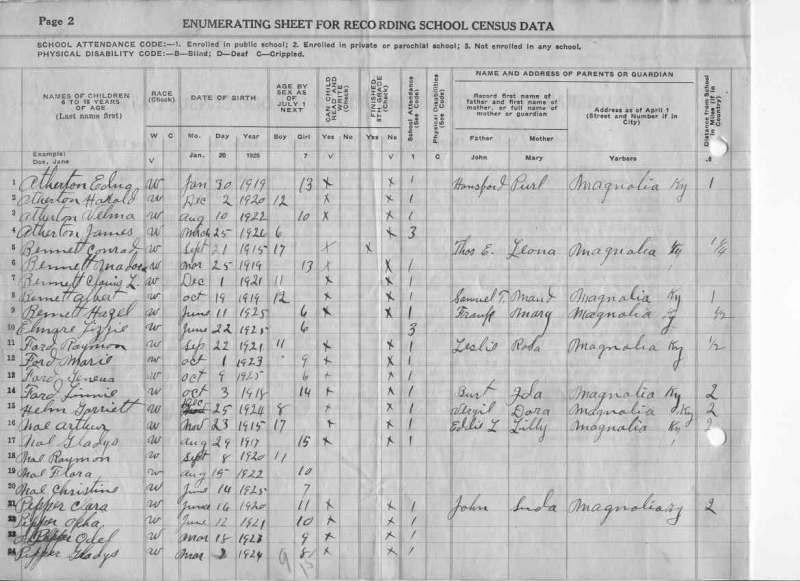 Page 2
ENUMERATING SHEET FOR RECORDING SCHOOL CENSUS DATA
SCHOOL ATTENDANCE CODE:—1. Enrolled in public school; 2. Enrolled in private or parochial school; 3. Not enrolled in any school.
PHYSICAL DISABILITY CODE:—B—Blind; D—Deaf C—Crippled.
NAMES OF CHILDREN 6 TO 18 YEARS OF AGE (Last name first)
RACE (Check)
DATE OF BIRTH
AGE BY SEX AS OF JULY 1 NEXT
CAN CHILD READ AND WRITE (Check)
FINISHED 8TH GRADE (Check)
School Attendance (See Code)
Physical Disabilities (See Code)
NAME AND ADDRESS OF PARENTS OR GUARDIAN
Record first name of father and first name of mother, or full name of mother or guardian
Address as of April 1 (Street and Number if in City)
Distance from School in Miles (if in Country)
W C Mo. Day Year Boy Girl Yes No Yes No Father Mother
Example: Doe, Jane V Jan. 20 1925 7 V V 1 C John Mary Yarbers .8
1 Atherton Edna W Jan 30 1919 13 x x 1 Hansford Purl Magnolia Ky 1
2 Atherton Harold W Dec 2 1920 12 x x 1
3 Atherton Velma W Aug 10 1922 10 x x 1
4 Atherton James W March 25 1926 6 x 3
5 Bennett Conrad W Sept 21 1915 17 x x Thos E. Leona Magnolia Ky 1 1/4
6 Bennett W Mar 25 1919 13 x x 1
7 Bennett L. W Dec 1 1921 11 x x 1
8 Bennett Albert W Oct 19 1919 12 x x 1 Samuel T. Maud Magnolia Ky 1
9 Bennett Hazel W June 11 1925 6 x x 1 Frank Mary Magnolia Ky 1/2
10 Elmore Lizzie W June 22 1925 6 3
11 Ford Raymon W Sep 22 1921 11 x x 1 Leslie Roda Magnolia Ky 1/2
12 Ford Marie W Oct 1 1923 9 x x 1
13 Ford Geneva W Oct 9 1925 6 x x 1
14 Ford Jinnie W Oct 3 1918 14 x x 1 Burt Ida Magnolia Ky 2
15 Helm W Dec 25 1924 8 x x 1 Virgil Dora Magnolia Ky 2
16 Nal Arthur W Nov 23 1915 17 x x 1 Eddie L Lilly Magnolia Ky 2
17 Nal Gladys W Aug 29 1917 15 x x 1
18 Nal Raymon W Sept 8 1920 11
19 Nal Flora W Aug 15 1922 10
20 Nal Christine W June 14 1925 7
21 Pepper Clara W June 16 1920 11 x x 1 John Magnolia Ky 2
22 Pepper Opha W June 12 1921 10 x x 1
23 Pepper W Mar 18 1923 9 x x 1
24 Pepper Gladys W Mar 2 1924 9 8 x x 1